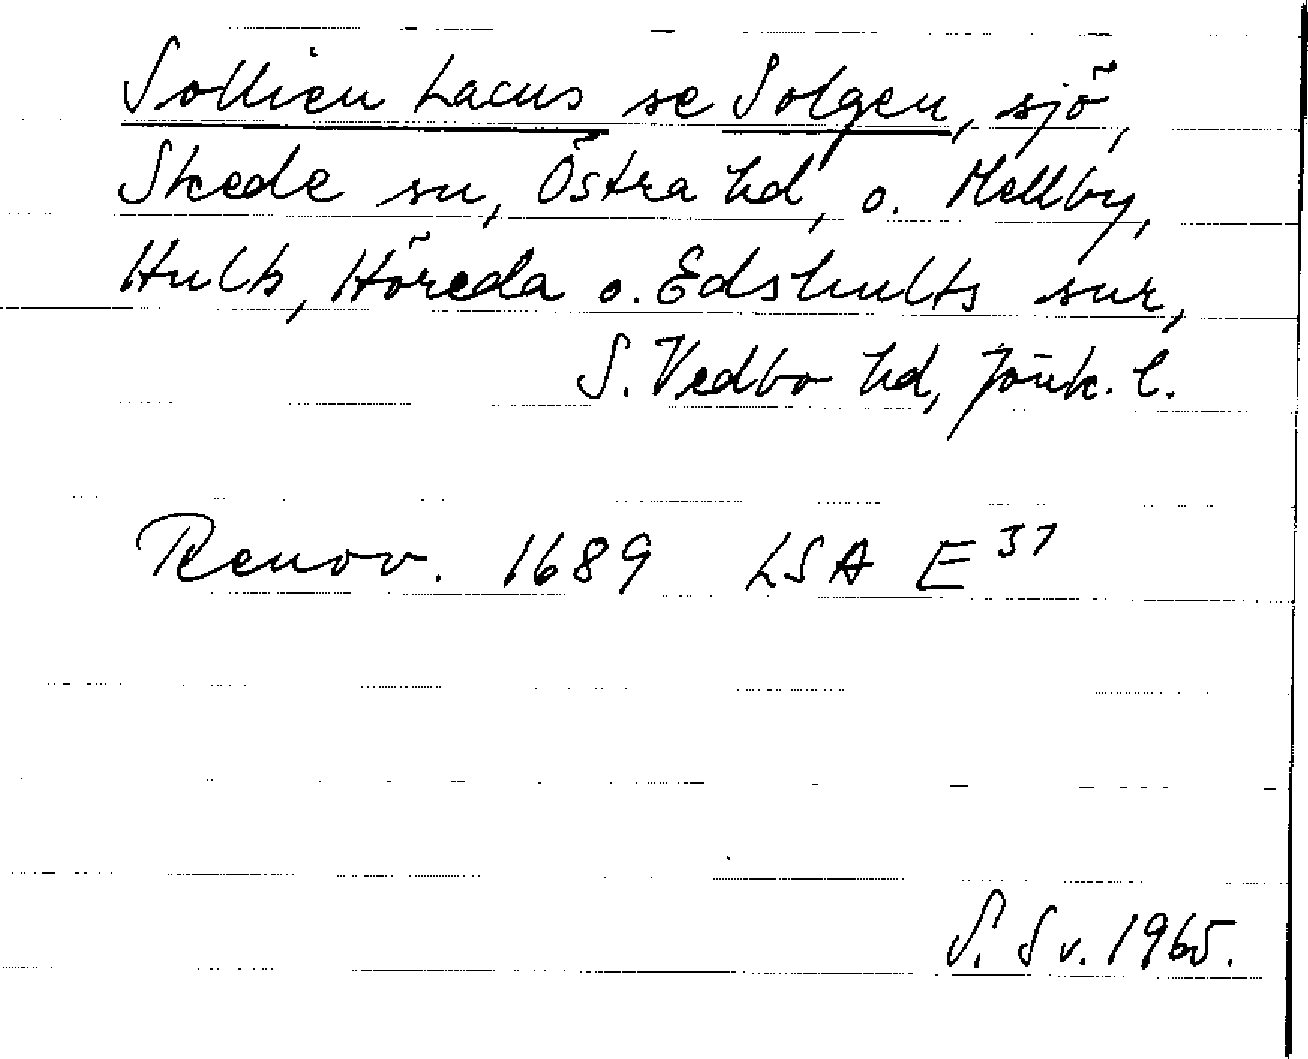 Sollien Lacus se Solgen, sjö,
Skede sn, Östra hd, o. Mellby,
Hults, Höreda o. Edshults snr,
S. Vedbo hd, Jönk. l.
Renov. 1689 LSA E 37
S. Sv. 1965.